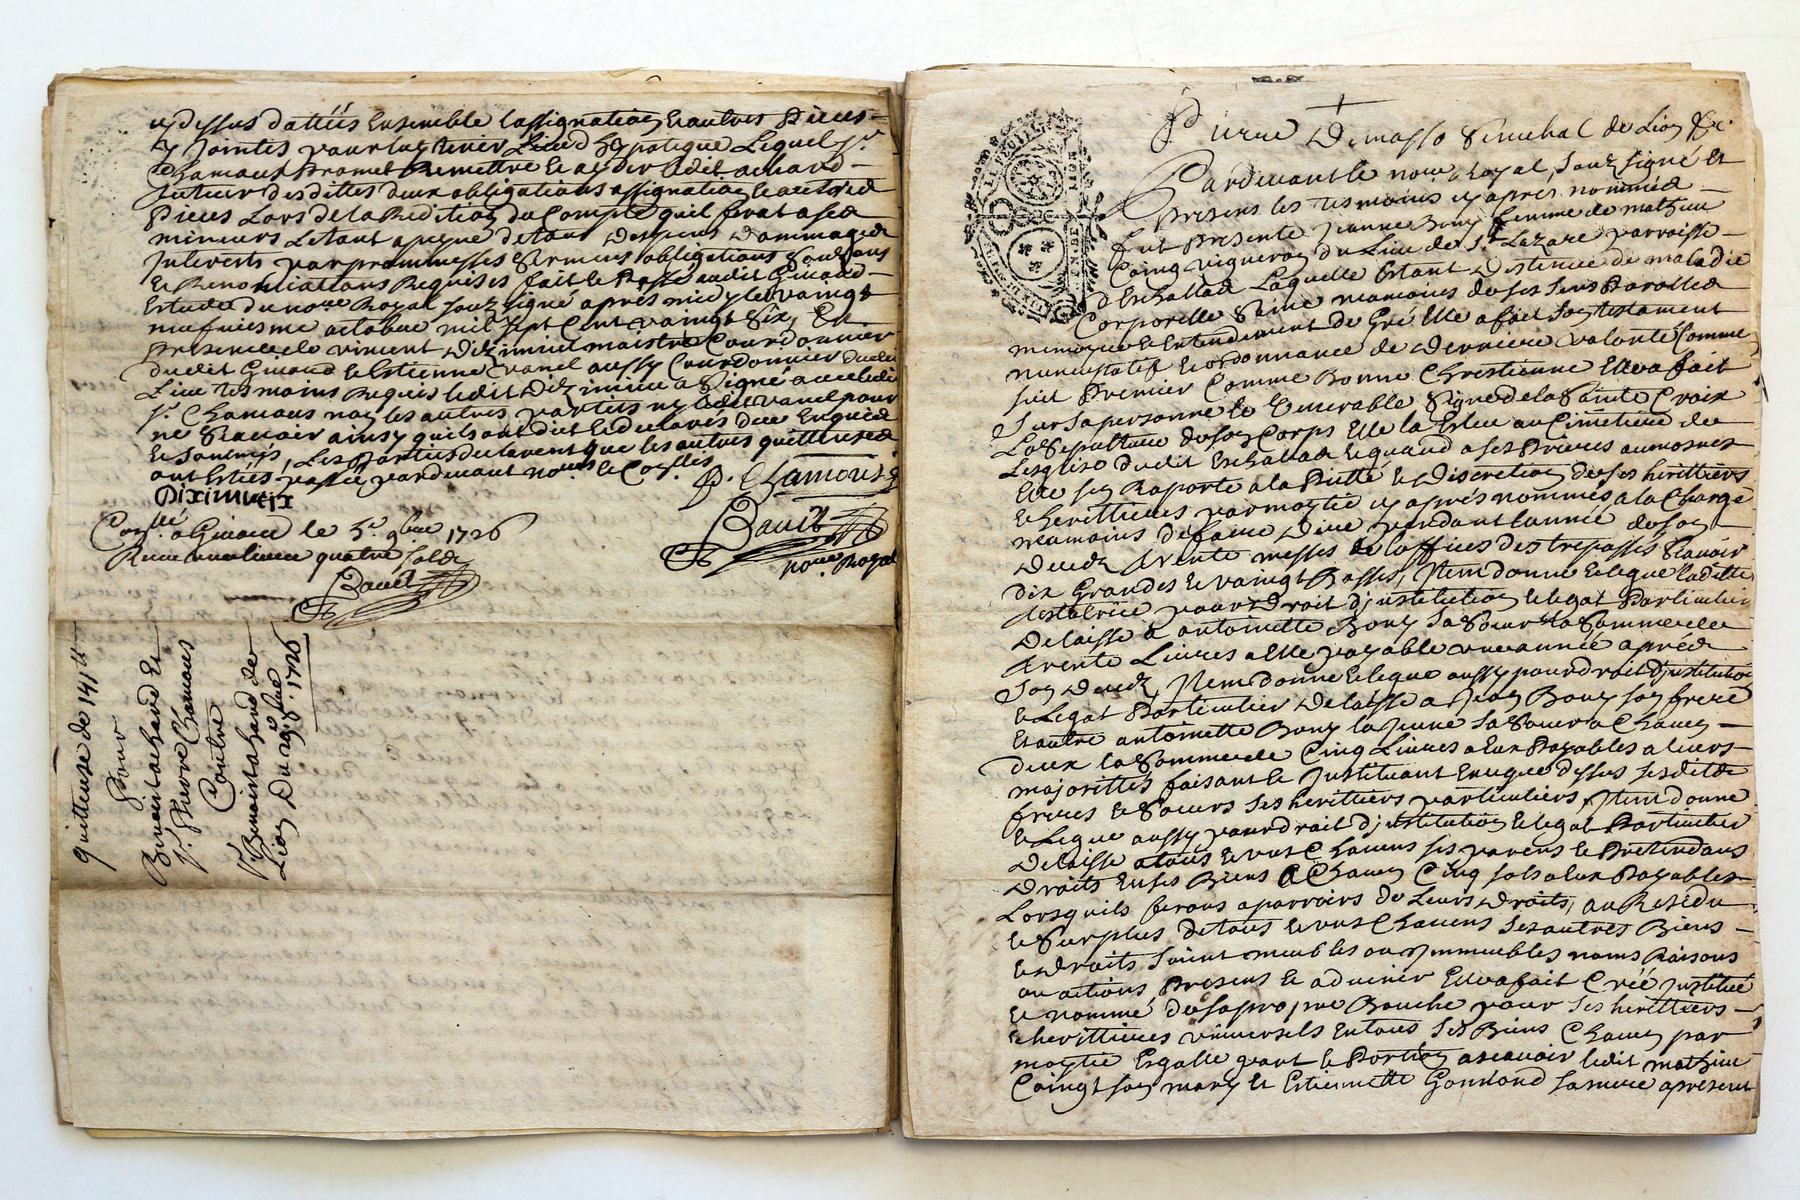 cy dessus dattés Ensemble lassignation et autres Pieces
cy jointes pour luy tenir Lieu d'hypoteque Lequel sr
Chamous Promet Remettre et ayder audit achard
tuteur desdittes deux obligations assignation et autres
Pieces Lors de la Reddition du Compte quil ferat ases
mineurs Letout apeyne detous despens dommages
Interests par promesses serment obligations soumissions
et Renonciations Requises fait et Passé audit Givord
Estude du nore Royal souz signé après midy le vaingt
neufuiesme octobre mil sept cent vaingt six, En
presence de vincent Diziminieu maistre Courdonnier
dudit Givord et Estienne vanel aussy Courdonnier dudit
Lieu tesmoins Requis ledit Diziminieu a signé avec ledit
sr Chamous non les autres parties ny ledit vanel pour
ne Scavoir ainsy quils ont dit et declarés de ce Enquis
et sommés, Les parties declarent que les autres quittences
ont Estées passé pardevant nous le Conslles
P. Chamous
Diximieux
Bauit
noire Royal
Conllé a Givord le 5e 9bre 1726
Receu une livre quatre solds
Bauit
quittense de 141 lt
Pour
Benoist achard Et
sr Pierre Chamous
Contre
sr Benoist achard de
Lion Du 29 8bre 1726
Pierre Demasso Seneschal de Lion &c
Pardevant le nore Royal, souz signé et
presens les tesmoins cy apres nommés
fut presente jeanne Bony femme de mathieu
Coing vigneron du Lieu de St Lazare parroisse
d'Eschallas Laquelle Estant Destenue de maladie
Corporelle Saine neamoins de ses sens Parolles
memoire et Entendement de Gré Elle a fait son testament
nuncupatif et ordonnance de derniere volonté Comme
suit Premier Comme Bonne Chrestienne Elle a fait
sur sa personne le Venerable signe de la Sainte Croix
La Sepulture de son Corps Elle la Eslu au Cimetiere de
Lesglise dudit Eschallas Et quand a ses Prieres aumosnes
Elle sen Raporte a la Pietté et discretion de ses herittiers
et herittieres par moytié cy aprés nommés a la Charge
neamoins de faire dire pendant lannée de son
decedz trente messes de loffices des trepassés Scavoir
dix Grandes et vaingt Basses, Item donne et legue laditte
testatrice pour droit d'institution et legat Particulier
delaisse a antoinette Bony sa Soeur la Somme de
trente Livres a Elle payable une année aprés
son decedz, Item donne et legue aussy pour droit d'institution
et Legat Particulier delaisse a Jean Bony son frere
Et autre antoinette Bony la jeune sa Soeur a Chacun
deux la Somme de Cinq Livres a Eux Payables a leurs
majorittés faisant et Instituant En ce que dessus sesdits
freres et Soeurs ses herittiers particuliers, Item donne
et Legue aussy pour droit d'institution et legat Particulier
delaisse a tous et uns Chacuns ses parens et Pretendans
Droits En ses Biens a Chacun Cinq sols a Eux Payables
Lorsquils feront aparroirs de Leurs Droits, au Residu
et Surplus de tous et uns Chacuns ses autres Biens
et droits soient meubles ou Immeubles noms Raisons
ou actions Presens et advenir Elle a fait Créé Institué
et nommé de sa propre Bouche pour ses herittiers
et herittieres universels En tous ses Biens Chacun par
moytié Esgalle part et Portion ascavoir ledit mathieu
Coingt son mary Et Estiennette Gonnond sa mere apresent